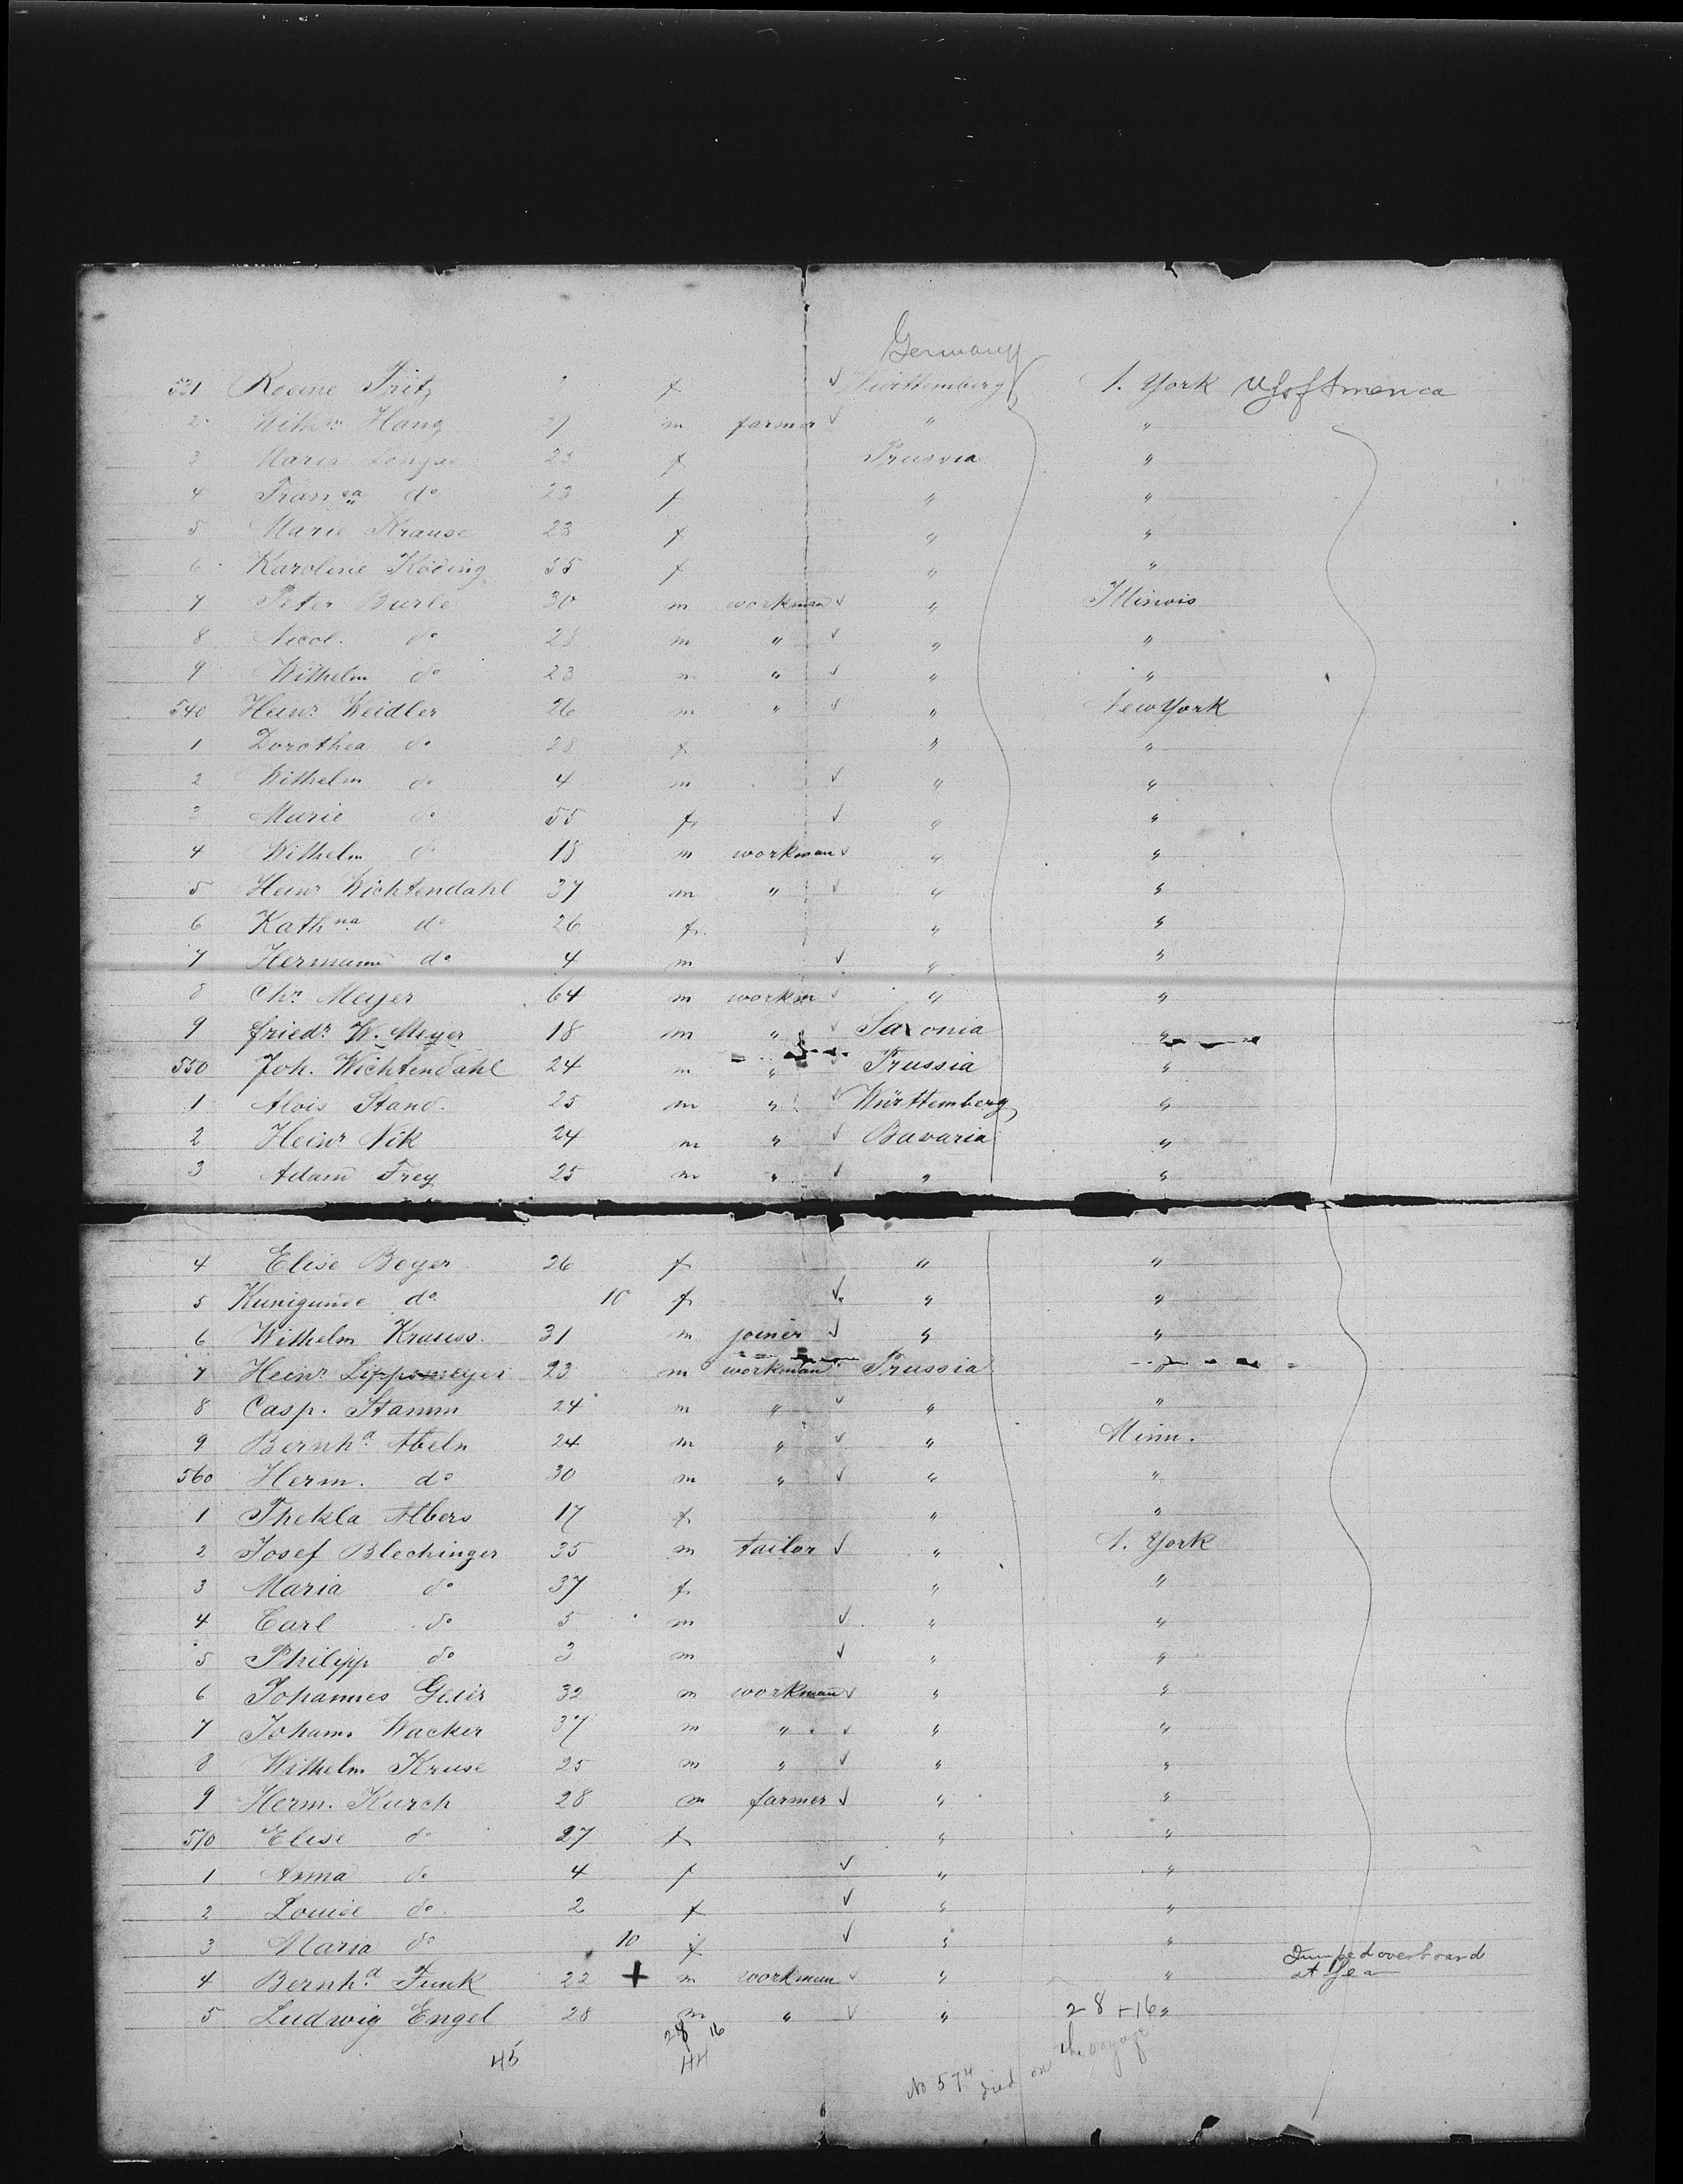 Germany
531 Rosine Fritz f Württemberg N. York US of America
2 Wilhm Hang 27 m farmer " "
3 Maria 25 f Prussia "
4 Fransa do 23 f " "
5 Marie Krause 23 f " "
6 Karoline Köding 55 f " "
7 Peter Burle 30 m workman " Illinois
8 Nicol. do 28 m " " "
9 Wilhelm do 23 m " " "
540 Heinr Weidler 26 m " " New York
1 Dorothea do 28 f " "
2 Wilhelm do 4 m " "
3 Marie do 55 f " "
4 Wilhelm do 18 m workman " "
5 Heinr Wichtendahl 37 m " " "
6 Kathna do 26 f " "
7 Hermann do 4 m " "
8 Chr. Meyer 64 m workm " "
9 Friedr W. Meyer 18 m " Saxonia "
550 Joh. Wichtendahl 24 m " Prussia "
1 Alois Stand. 25 m " Württemberg "
2 Heinr Nik 24 m " Bavaria "
3 Adam Frey 25 m " " "
4 Elise Beyer 26 f " "
5 Kunigunde do 10 f " "
6 Wilhelm Krauss. 31 m joiner " "
7 Heinr Lippsmeyer 23 m workman Prussia "
8 Casp. Stamm 24 m " " "
9 Bernhd Abeln 24 m " " Minn.
560 Herm. do 30 m " " "
1 Thekla Albers 17 f " "
2 Josef Blechinger 35 m tailor " N. York
3 Maria do 37 f " "
4 Carl do 5 m " "
5 Philipp do 3 m " "
6 Johannes Geier 32 m workman " "
7 Johann Wacker 37 m " " "
8 Wilhelm Kruse 25 m " " "
9 Herm. Kurch 28 m farmer " "
570 Elise do 27 f " "
1 Anna do 4 f " "
2 Louise do 2 f " "
3 Maria do 10 f " "
Jumped overboard
4 Bernhd Funk 22 + m workman " " at Sea
5 Ludwig Engel 28 m " " 28+16 "
28 16
45 44
No 574 died on the voyage